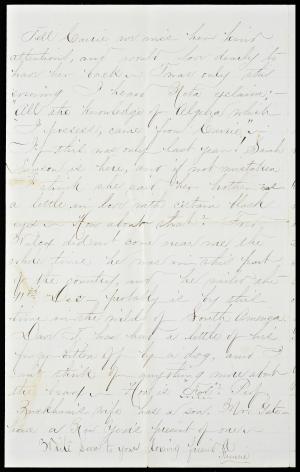 Tell Carrie we miss her kind
attentions, and would love dearly to
have her back. I was only this
evening I heard Nota exclaim;-
"All the knowledge of Algebra which
I possess, came from Carrie,"
& this was only last year! Sarah
is here, and if not mistaken
I think she and her brother
a little in love with certain black
eyes - How about that?
didn't come near me, the
whole time he was in this part
of the country, and he sailed the
11th Dec - probably is by this
time in the midst of South America
had a little of his
bitten off by a dog, and I
can't think of anything more about
the - How is "Prof"? Prof
wife has a son. Mr.
have a New Year's present of one -
Write soon to your loving friend